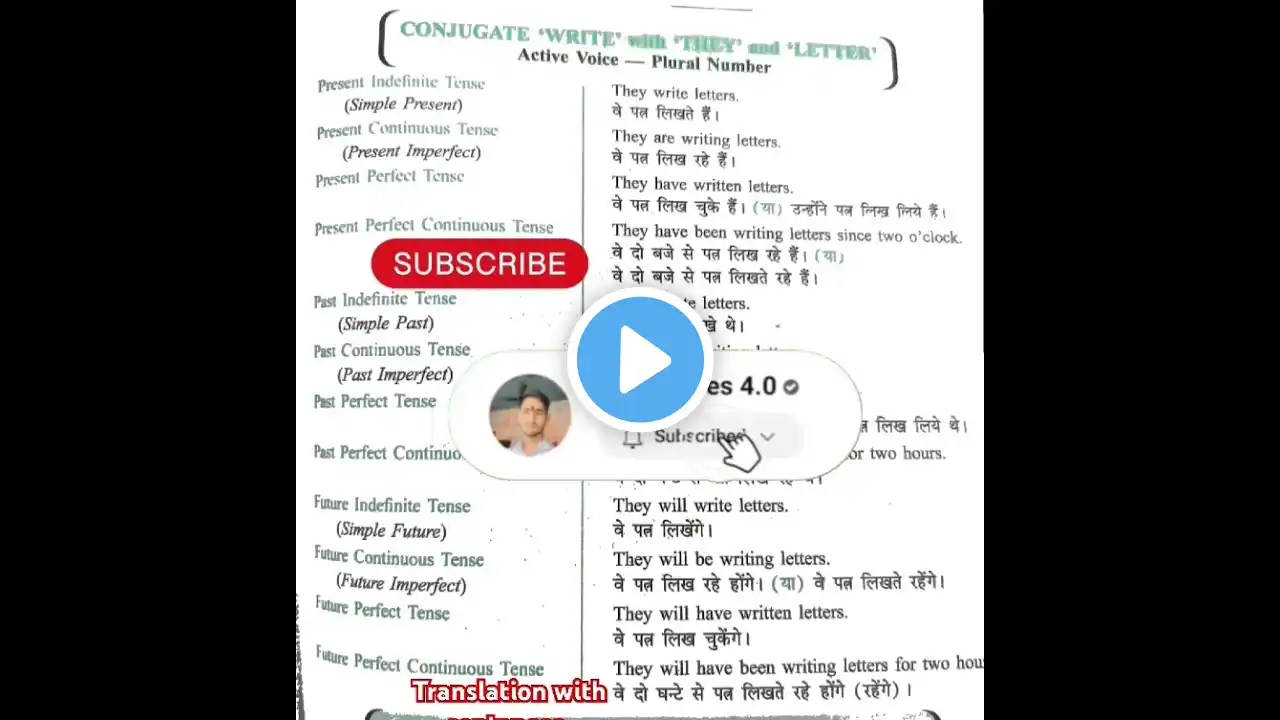 CONJUGATE ‘WRITE’ with ‘THEY’ and ‘LETTER’
Active Voice — Plural Number
Present Indefinite Tense
They write letters.
(Simple Present)
वे पत्र लिखते हैं।
Present Continuous Tense
They are writing letters.
(Present Imperfect)
वे पत्र लिख रहे हैं।
Present Perfect Tense
They have written letters.
वे पत्र लिख चुके हैं। (या) उन्होंने पत्र लिख लिये हैं।
Present Perfect Continuous Tense
They have been writing letters since two o’clock.
वे दो बजे से पत्र लिख रहे हैं। (या)
SUBSCRIBE
वे दो बजे से पत्र लिखते रहे हैं।
Past Indefinite Tense
letters.
(Simple Past)
थे।
Past Continuous Tense
(Past Imperfect)
es 4.0
Past Perfect Tense
लिख लिये थे।
Subscribed
Past Perfect Continuo
or two hours.
Future Indefinite Tense
They will write letters.
(Simple Future)
वे पत्र लिखेंगे।
Future Continuous Tense
They will be writing letters.
(Future Imperfect)
वे पत्र लिख रहे होंगे। (या) वे पत्र लिखते रहेंगे।
Future Perfect Tense
They will have written letters.
वे पत्र लिख चुकेंगे।
Future Perfect Continuous Tense
They will have been writing letters for two hou
Translation with
वे दो घन्टे से पत्र लिखते रहे होंगे (रहेंगे) ।